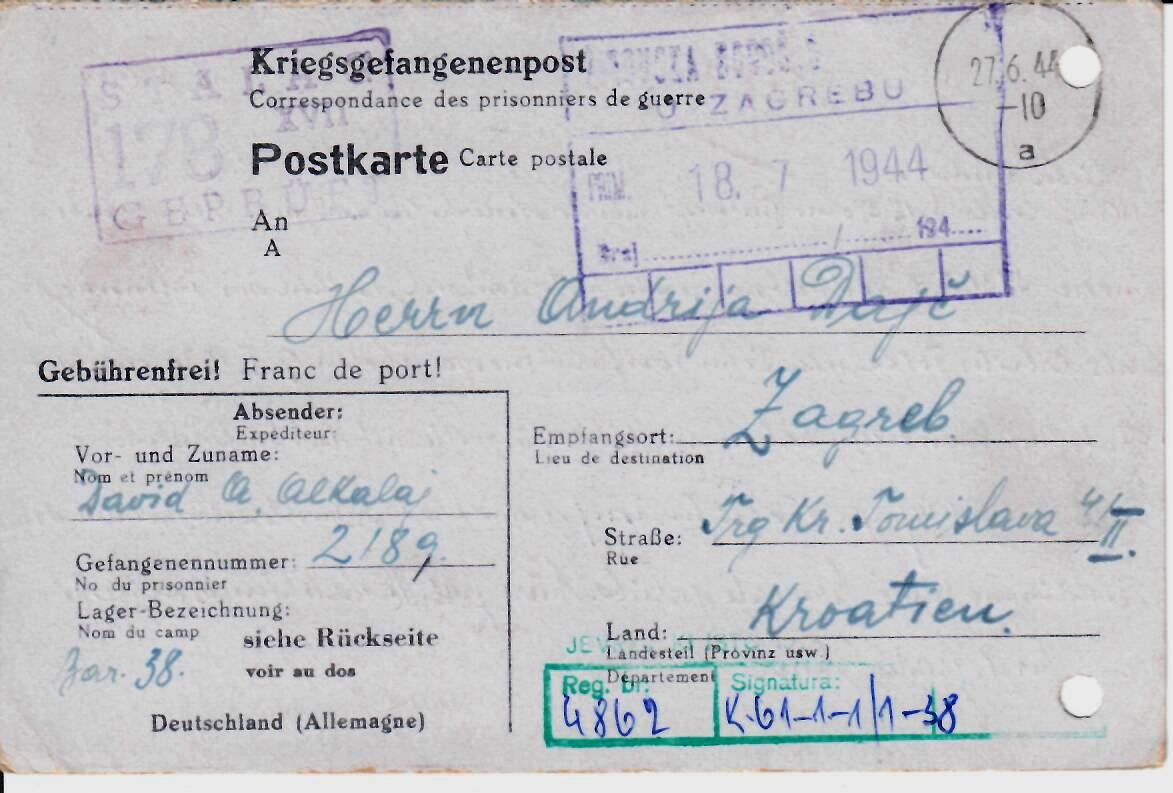 STALAG
XVII
178
GEPRÜFT
Kriegsgefangenenpost
Correspondance des prisonniers de guerre
U ZAGREBU
27.6.44
-10
a
Postkarte Carte postale
18. 7 1944
An
A
Broj 194
Herrn Andrija Dajč
Gebührenfrei! Franc de port!
Absender:
Expéditeur:
Vor- und Zuname:
Nom et prénom
David A. Alkalaj
Gefangenennummer: 2189.
No du prisonnier
Lager-Bezeichnung:
Nom du camp
siehe Rückseite
voir au dos
38.
Deutschland (Allemagne)
Empfangsort: Zagreb.
Lieu de destination
Straße: Trg Kr. Tomislava 4/II.
Rue
Kroatien.
Land:
Landesteil (Provinz usw.)
Département
Reg. br. 4862
Signatura: K-61-1-1/1-38